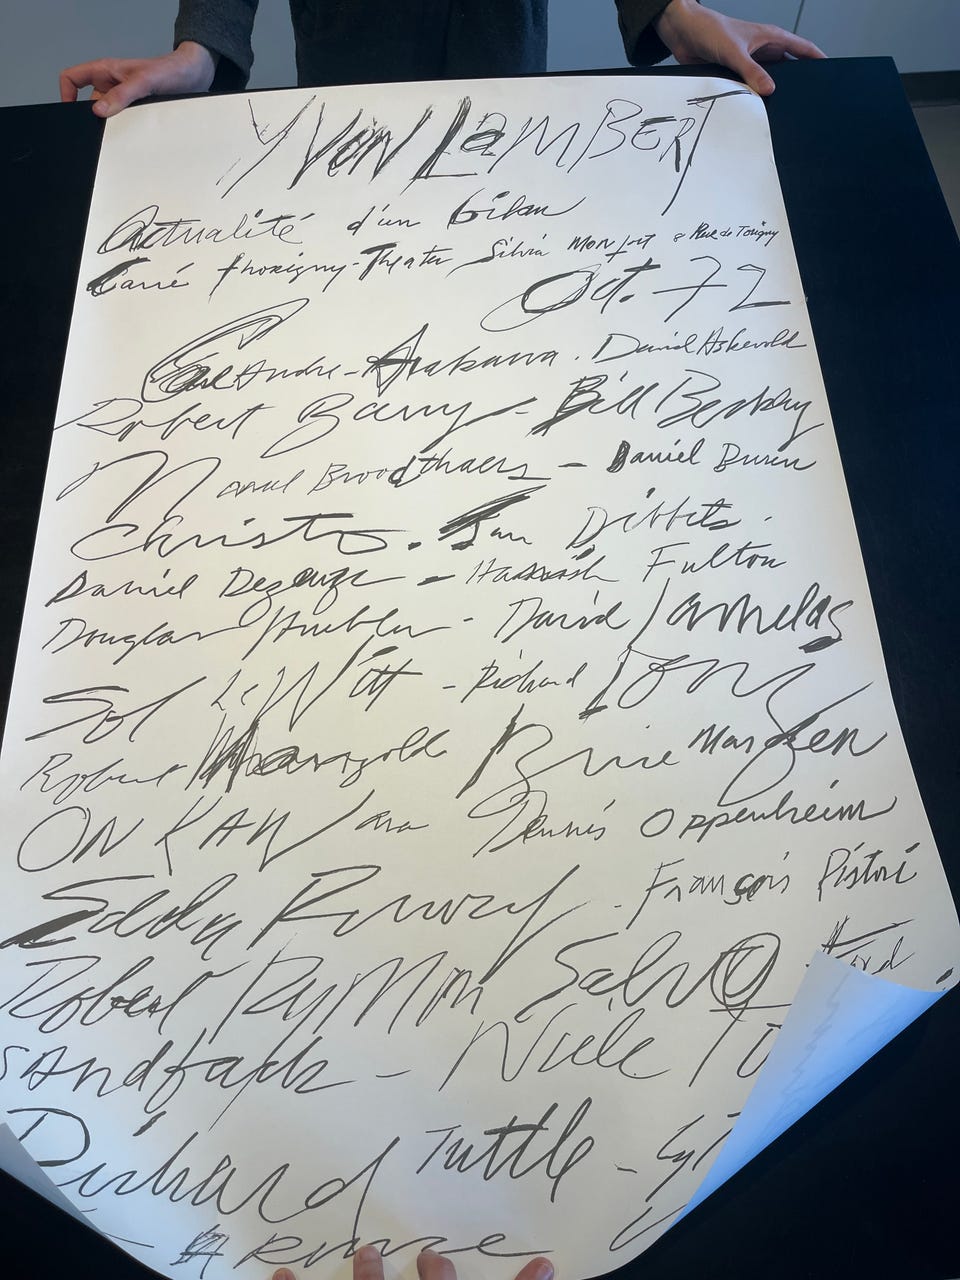 YVON LAMBERT
Actualité d'un bilan
Carré Thorigny - Theater Silvia Monfort 8 Rue de Torigny
Oct. 72
Carl Andre - Arakawa. David Askevold
Robert Barry - Bill Beckley
Marcel Broodthaers - Daniel Buren
Christo. Jan Dibbets.
Daniel Dezeuze - Hamish Fulton
Douglas Huebler - David Lamelas
Sol LeWitt - Richard Long
Robert Mangold Brice Marden
ON KAWara Dennis Oppenheim
François Pistori
Robert Ryman Salvo
Sandback - Niele To
Richard Tuttle - Cy